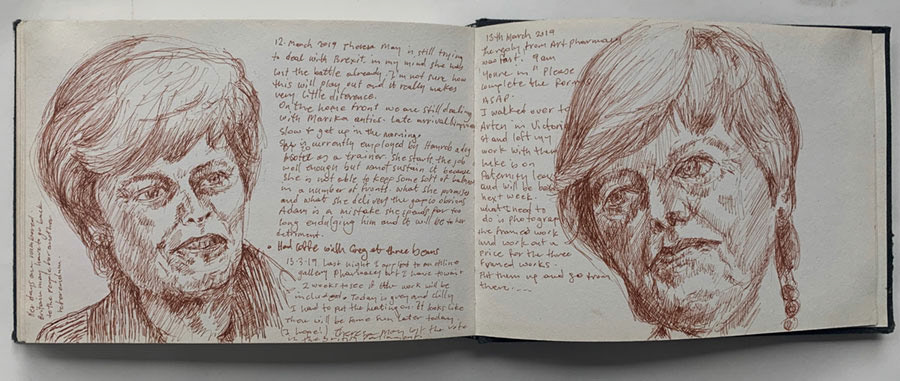 12. March 2019 Theresa May is still trying
to deal with Brexit. in my mind she has
lost the battle already. I'm not sure how
this will play out and it really makes
very little diference.
On the home front we are still dealing
with Marika antics. Late arrival
slow to get up in the morning.
is currently employed by
as a trainer. She starts the job
well though but cannot sustain it because
she is not able to keep some sort of
in a number of fronts. what she promises
and what she delivers the gap is obvious
Adam is a mistake she spends far too
long endulging him and it will be to her
detriment.
Had coffee with Greg at three beans
13-3-19. Last night I applied to an online
gallery Pharmacy but I have to wait
2 weeks to see if the work will be
included. Today is grey and chilly
I had to put the heating on. It looks like
there will be some sun later today.
I hope! Theresa May lost the vote
in the british Parliament.
to the people for and
13th March 2019
the reply from Art Pharmacy
was fast. 9am
You're in "Please
complete the form
ASAP.
I walked over to
Arten in Victoria
st and left my
work with them
Luke is on
Paternity leave
and will be back
next week.
what I need to
do is Photograph
the framed work
and work out a
Price for the three
Framed works.
Put them up and go from
there....